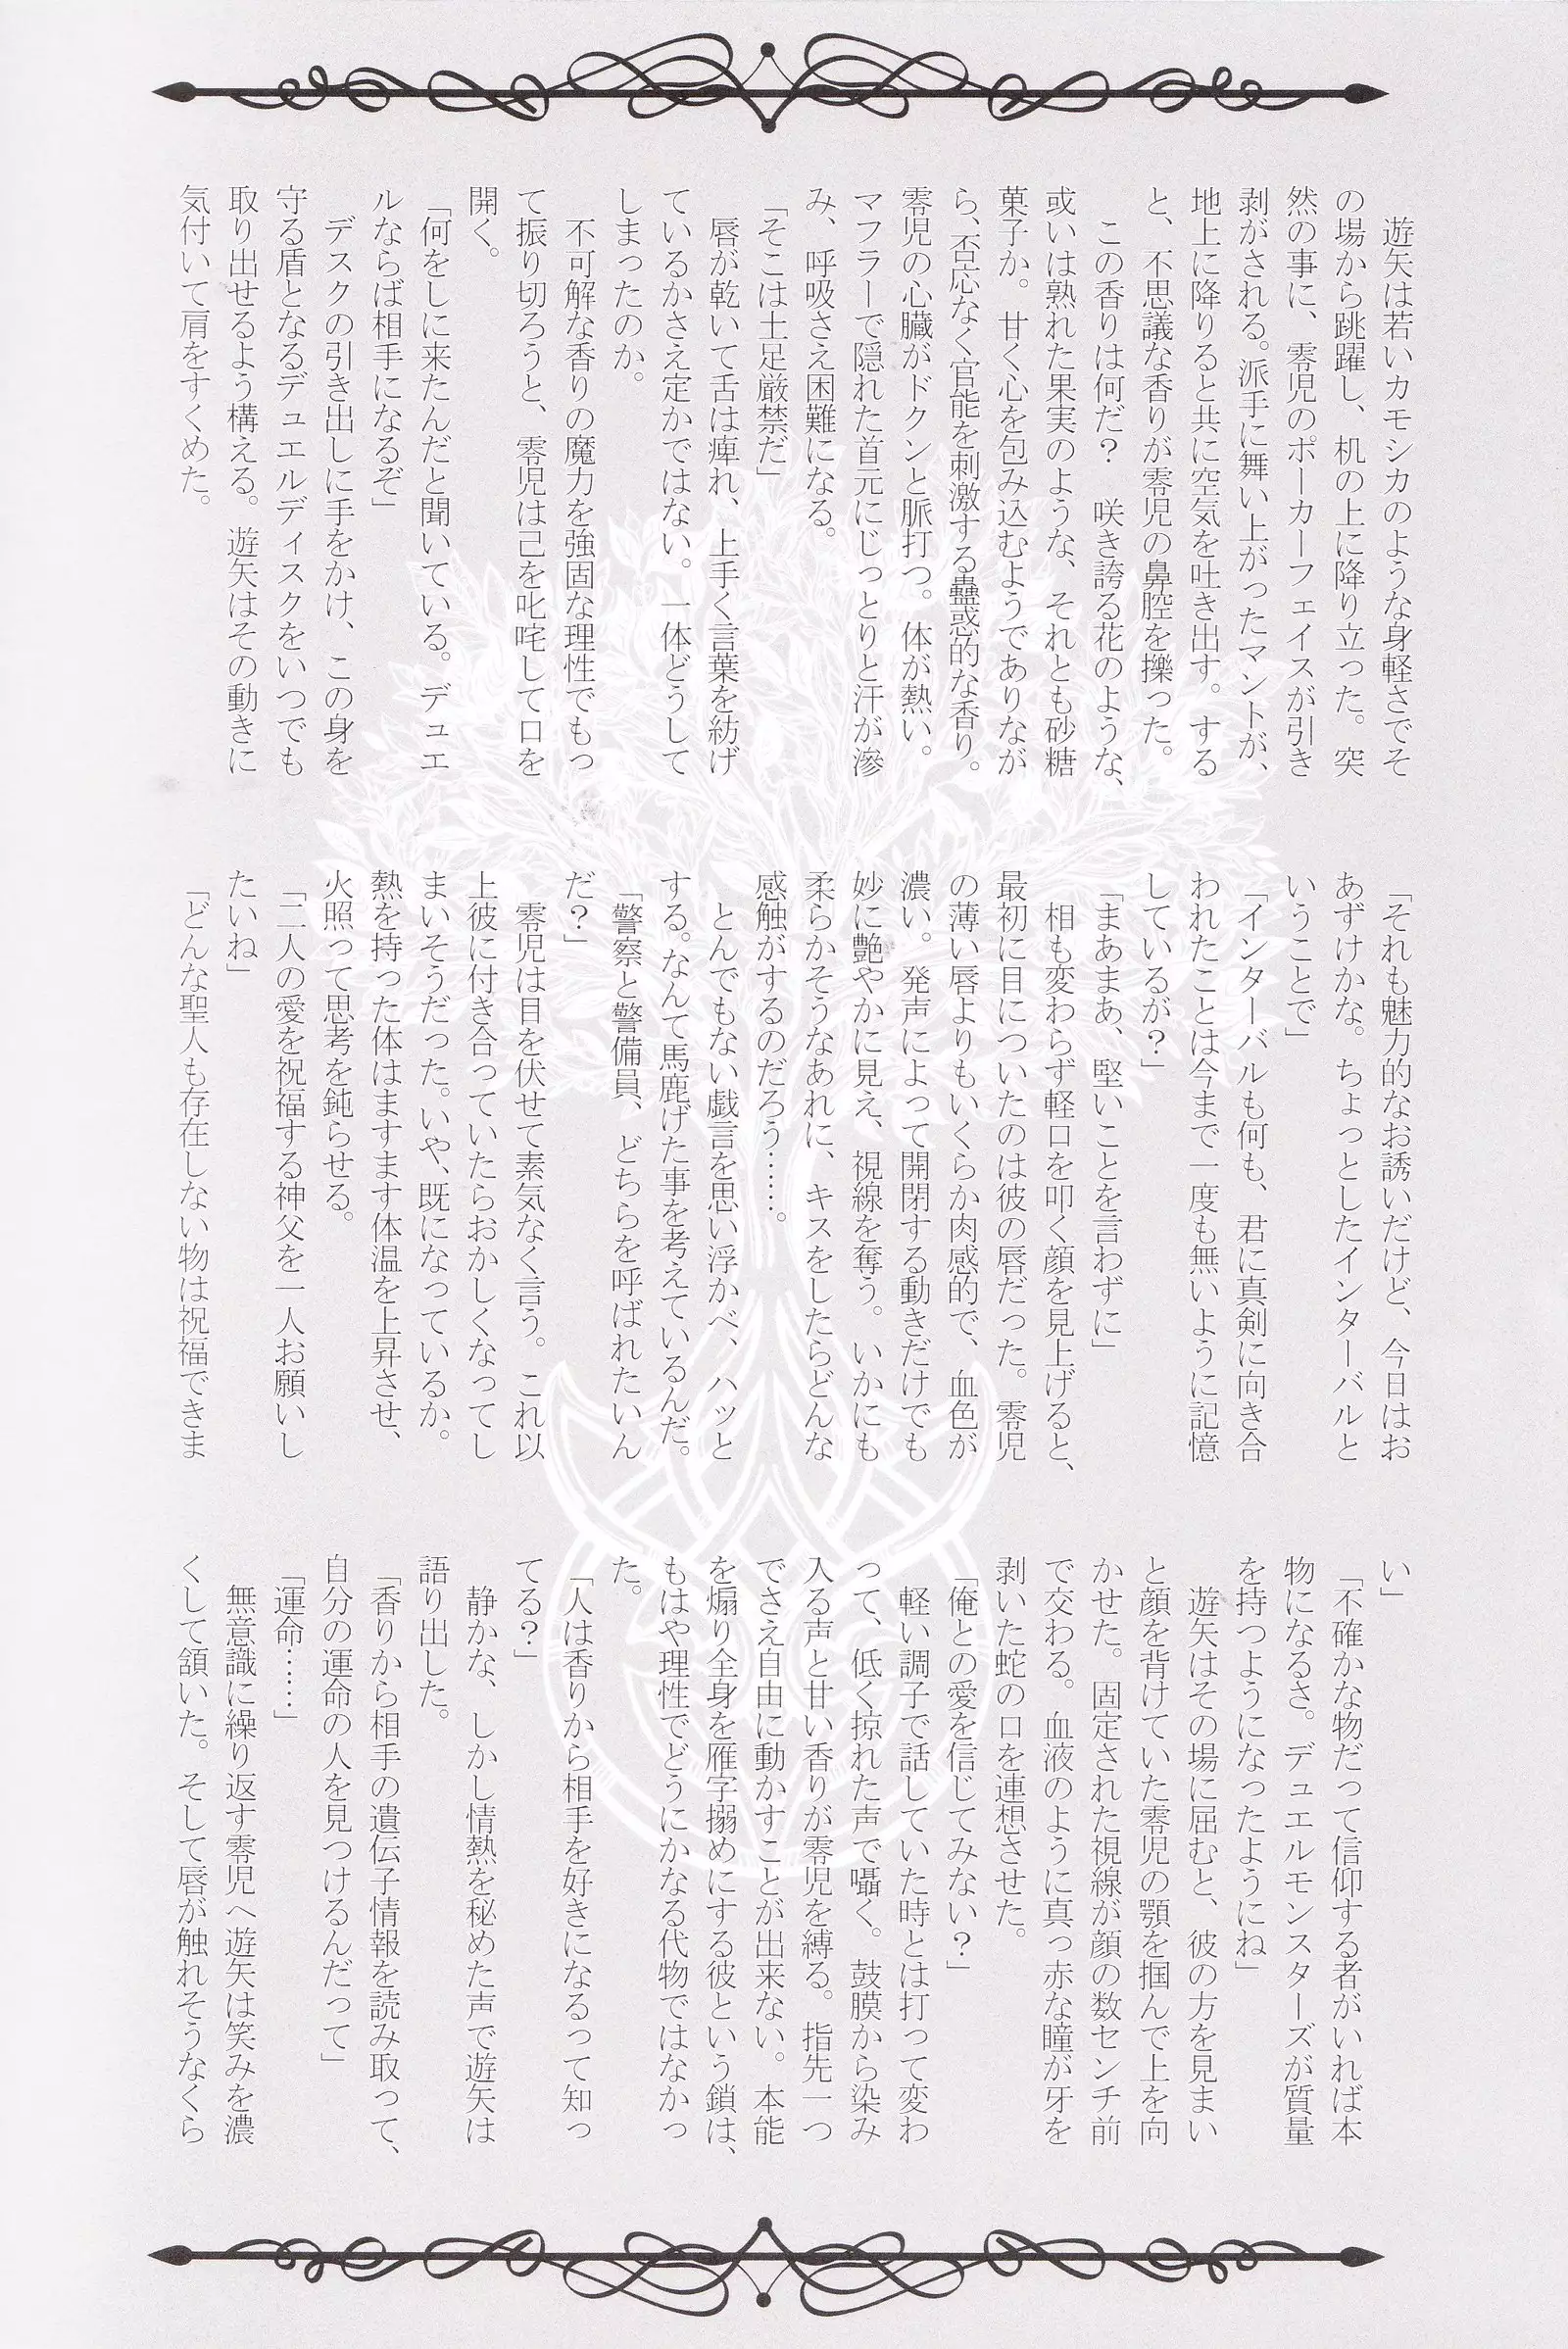 遊矢は若いカモシカのような身軽さでそ
の場から跳躍し、机の上に降り立った。突
然の事に、零児のポーカーフェイスが引き
剥がされる。派手に舞い上がったマントが、
地上に降りると共に空気を吐き出す。する
と、不思議な香りが零児の鼻腔を擽った。
この香りは何だ？　咲き誇る花のような、
或いは熟れた果実のような、それとも砂糖
菓子か。甘く心を包み込むようでありなが
ら、否応なく官能を刺激する蠱惑的な香り。
零児の心臓がドクンと脈打つ。体が熱い。
マフラーで隠れた首元にじっとりと汗が滲
み、呼吸さえ困難になる。
「そこは土足厳禁だ」
唇が乾いて舌は痺れ、上手く言葉を紡げ
ているかさえ定かではない。一体どうして
しまったのか。
不可解な香りの魔力を強固な理性でもっ
て振り切ろうと、零児は己を叱咤して口を
開く。
「何をしに来たんだと聞いている。デュエ
ルならば相手になるぞ」
デスクの引き出しに手をかけ、この身を
守る盾となるデュエルディスクをいつでも
取り出せるよう構える。遊矢はその動きに
気付いて肩をすくめた。
「それも魅力的なお誘いだけど、今日はお
あずけかな。ちょっとしたインターバルと
いうことで」
「インターバルも何も、君に真剣に向き合
われたことは今まで一度も無いように記憶
しているが？」
「まあまあ、堅いことを言わずに」
相も変わらず軽口を叩く顔を見上げると、
最初に目についたのは彼の唇だった。零児
の薄い唇よりもいくらか肉感的で、血色が
濃い。発声によって開閉する動きだけでも
妙に艶やかに見え、視線を奪う。いかにも
柔らかそうなあれに、キスをしたらどんな
感触がするのだろう……。
とんでもない戯言を思い浮かべ、ハッと
する。なんて馬鹿げた事を考えているんだ。
「警察と警備員、どちらを呼ばれたいん
だ？」
零児は目を伏せて素気なく言う。これ以
上彼に付き合っていたらおかしくなってし
まいそうだった。いや、既になっているか。
熱を持った体はますます体温を上昇させ、
火照って思考を鈍らせる。
「二人の愛を祝福する神父を一人お願いし
たいね」
「どんな聖人も存在しない物は祝福できま
い」
「不確かな物だって信仰する者がいれば本
物になるさ。デュエルモンスターズが質量
を持つようになったようにね」
遊矢はその場に屈むと、彼の方を見まい
と顔を背けていた零児の顎を掴んで上を向
かせた。固定された視線が顔の数センチ前
で交わる。血液のように真っ赤な瞳が牙を
剥いた蛇の口を連想させた。
「俺との愛を信じてみない？」
軽い調子で話していた時とは打って変わ
って、低く掠れた声で囁く。鼓膜から染み
入る声と甘い香りが零児を縛る。指先一つ
でさえ自由に動かすことが出来ない。本能
を煽り全身を雁字搦めにする彼という鎖は、
もはや理性でどうにかなる代物ではなかっ
た。
「人は香りから相手を好きになるって知っ
てる？」
静かな、しかし情熱を秘めた声で遊矢は
語り出した。
「香りから相手の遺伝子情報を読み取って、
自分の運命の人を見つけるんだって」
「運命……」
無意識に繰り返す零児へ遊矢は笑みを濃
くして頷いた。そして唇が触れそうなくら